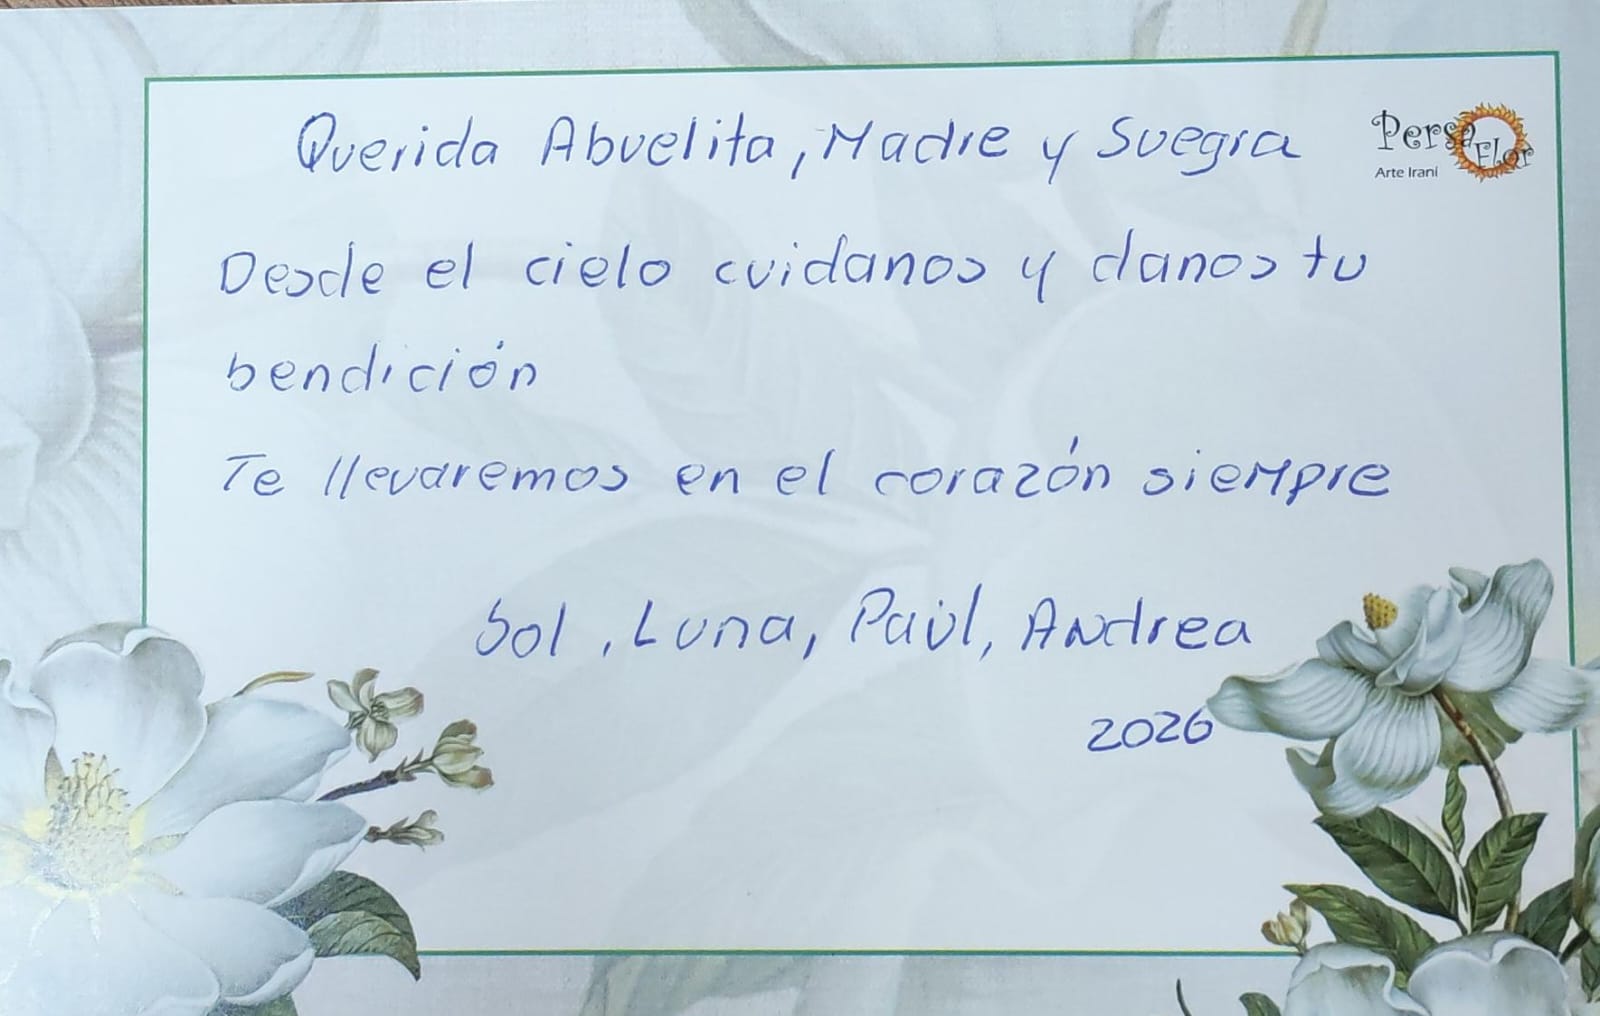 Querida Abuelita, Madre y Suegra
Persa Flor
Arte Irani
Desde el cielo cuidanos y danos tu
bendición
Te llevaremos en el corazón siempre
Sol, Luna, Paúl, Andrea
2026